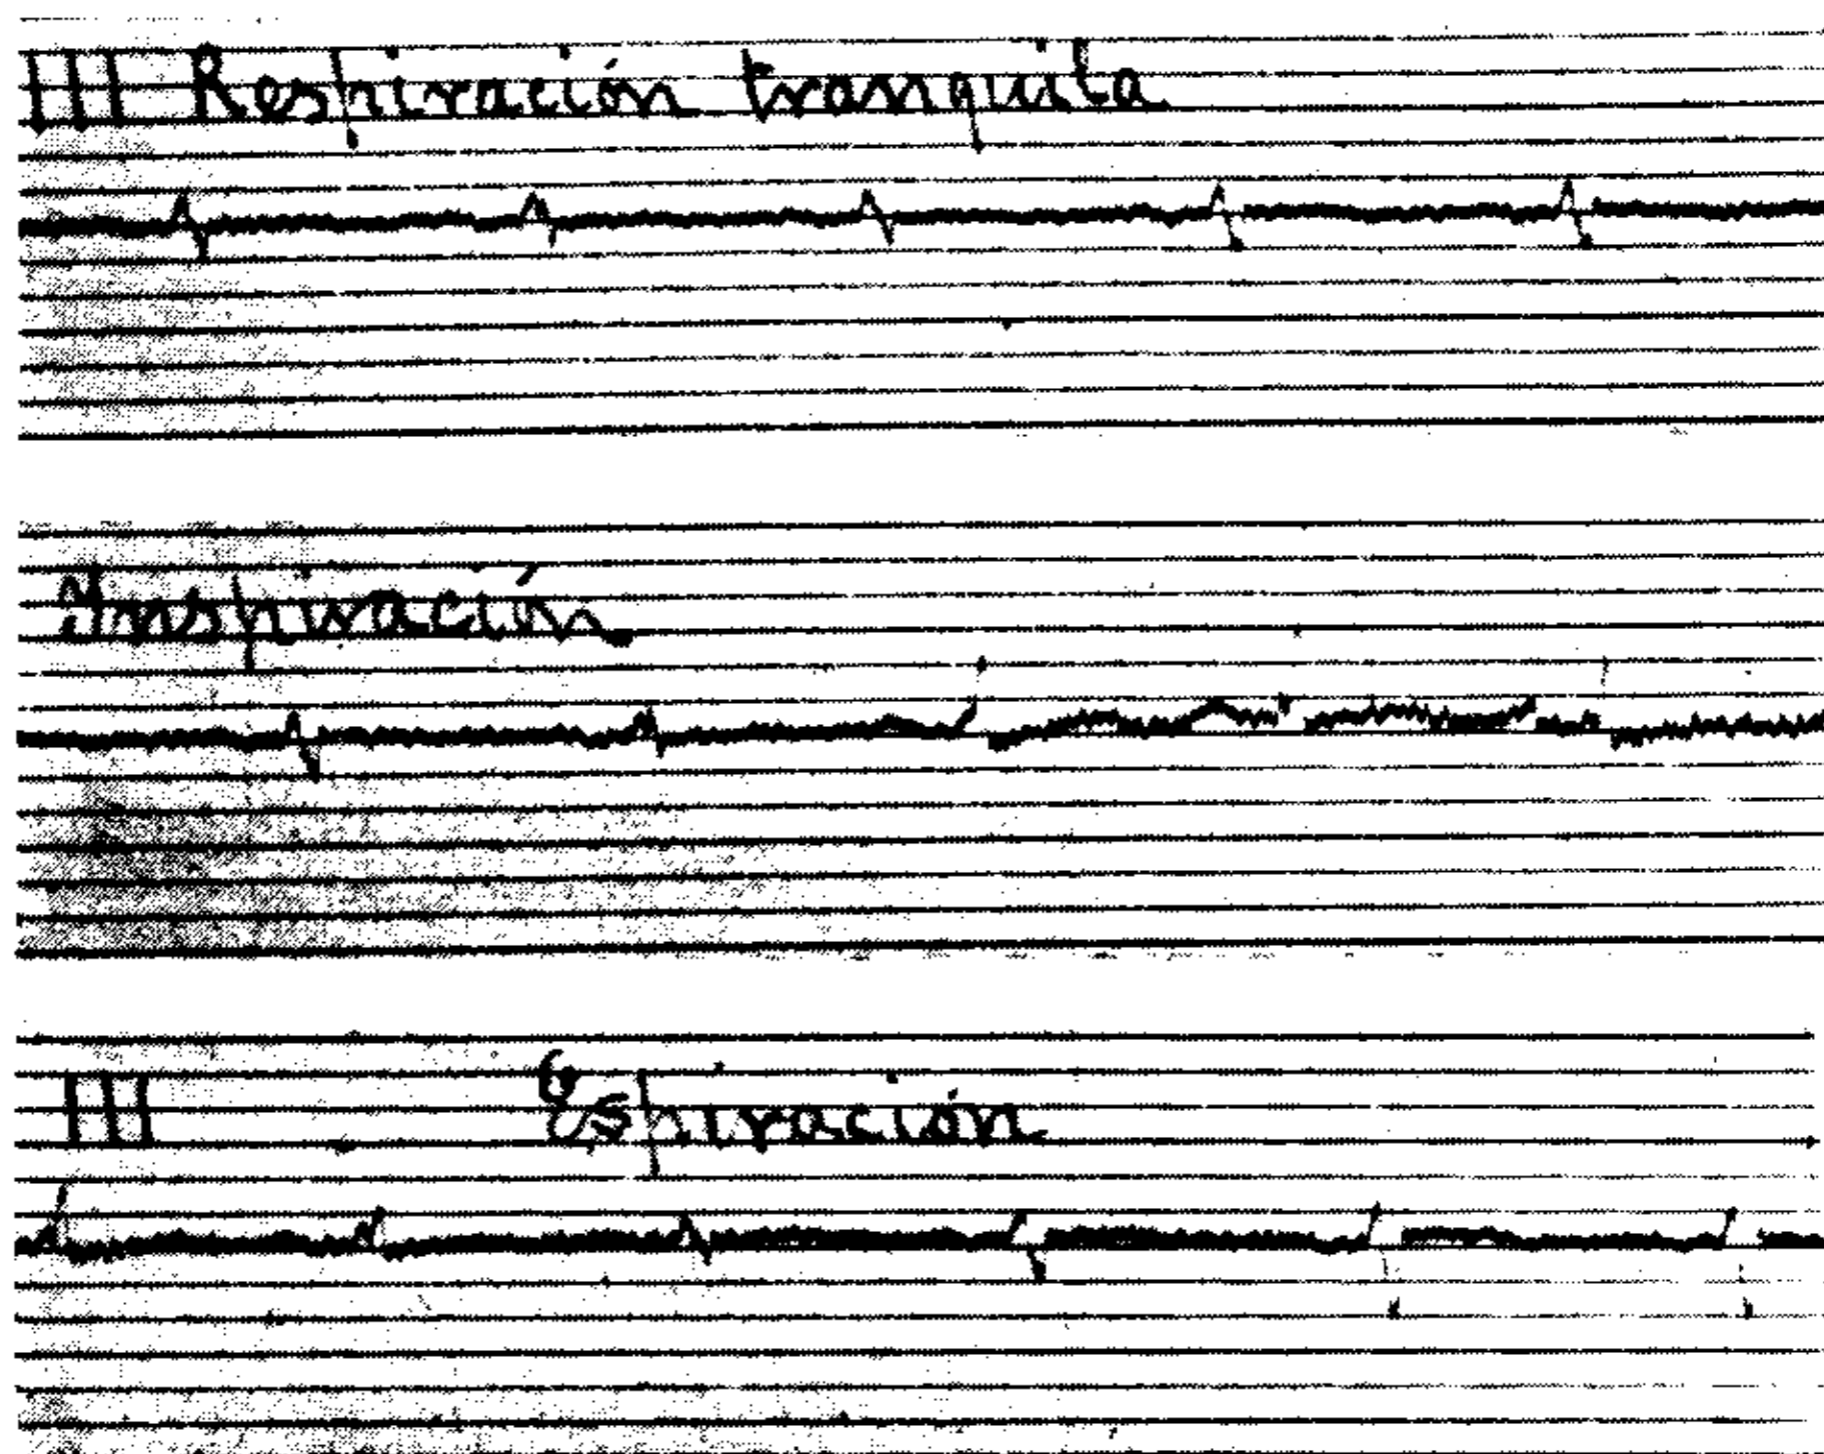 III Respiración tranquila
Inspiración
III Espiración